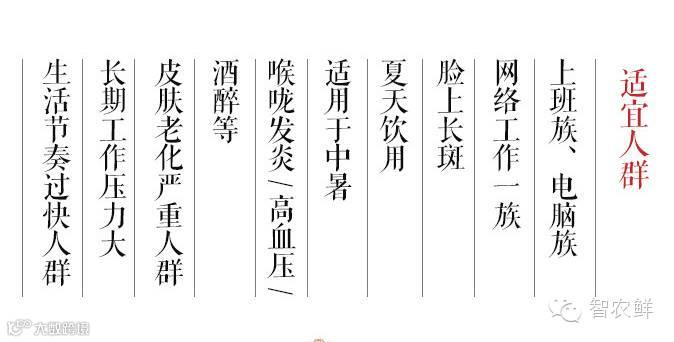 适宜人群
上班族、电脑族
网络工作一族
脸上长斑
夏天饮用
适用于中暑
喉咙发炎/高血压/
酒醉等
皮肤老化严重人群
长期工作压力大
生活节奏过快人群
智农鲜
大数跨境